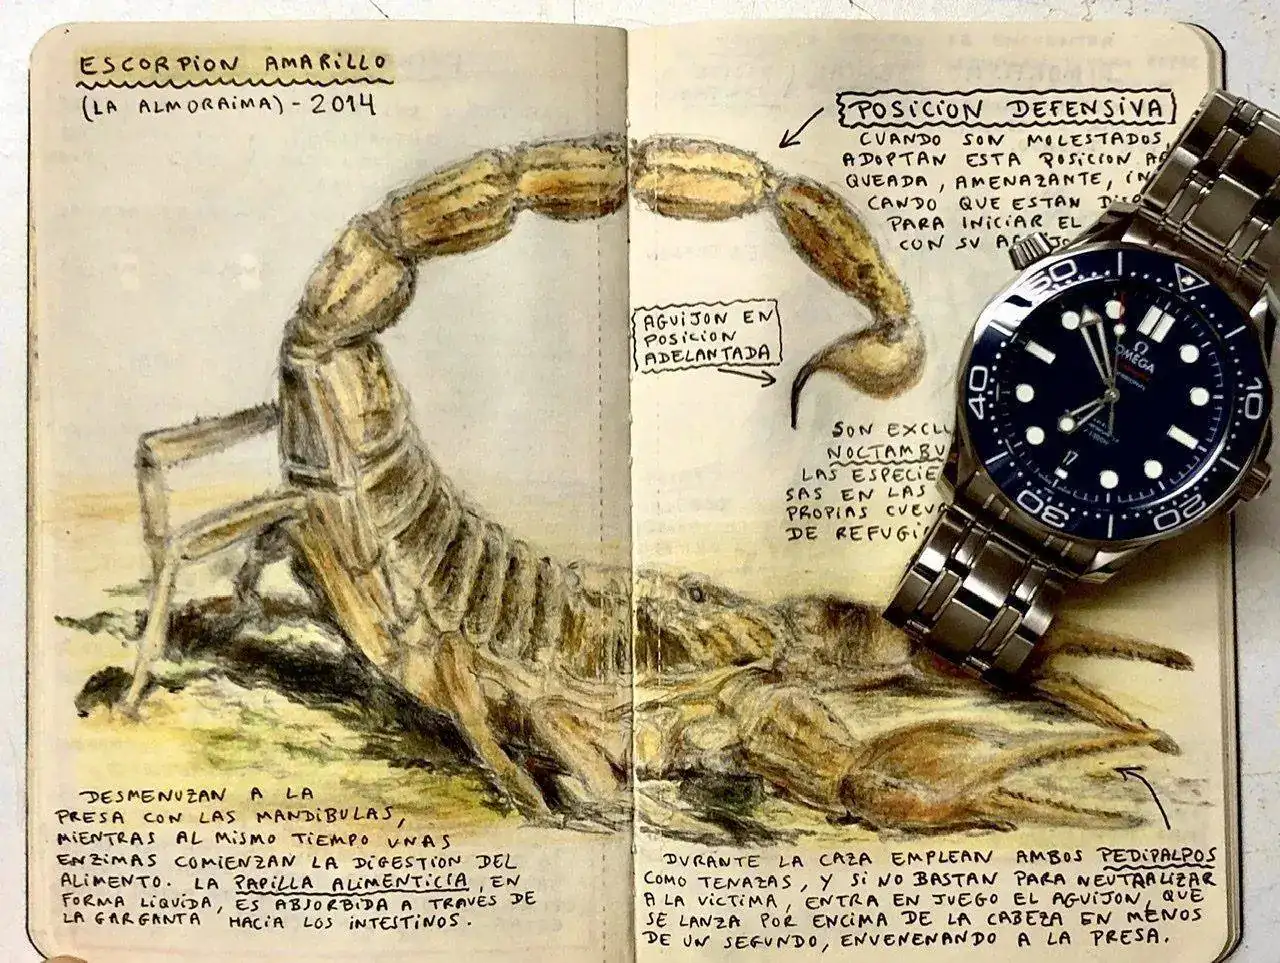 ESCORPION AMARILLO
(LA ALMORAIMA) - 2014
POSICION DEFENSIVA
CUANDO SON MOLESTADOS,
ADOPTAN ESTA POSICION
QUEADA, AMENAZANTE,
CANDO QUE ESTAN
PARA INICIAR EL
CON SU
AGUIJON EN
POSICION
ADELANTADA
SON
LAS
SAS EN LAS
PROPIAS
DE
60
10
20
30
40
Ω
OMEGA
17
DESMENUZAN A LA
PRESA CON LAS MANDIBULAS,
MIENTRAS AL MISMO TIEMPO UNAS
ENZIMAS COMIENZAN LA DIGESTION DEL
ALIMENTO. LA PAPILLA ALIMENTICIA, EN
FORMA LIQUIDA, ES ABSORBIDA A TRAVES DE
LA GARGANTA HACIA LOS INTESTINOS.
DURANTE LA CAZA EMPLEAN AMBOS PEDIPALPOS
COMO TENAZAS, Y SI NO BASTAN PARA NEUTRALIZAR
A LA VICTIMA, ENTRA EN JUEGO EL AGUIJON, QUE
SE LANZA POR ENCIMA DE LA CABEZA EN MENOS
DE UN SEGUNDO, ENVENENANDO A LA PRESA.